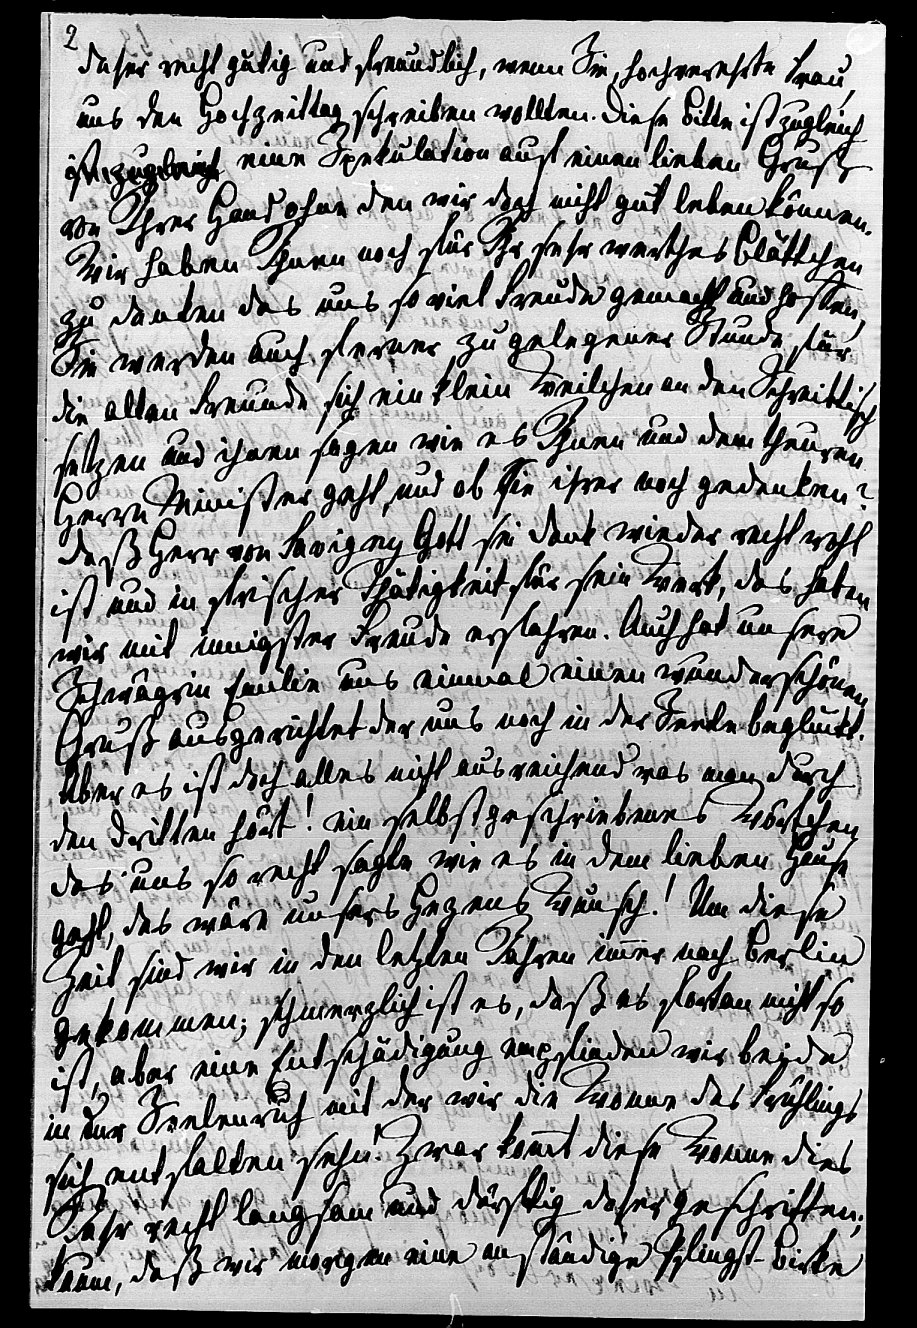 2
daher recht gütig und freundlich, wenn Sie, hochverehrte Frau,
uns den Hochzeittag schreiben wollten. Diese Bitte ist zugleich
ist zugleich eine Spekulation auf einen lieben Gruß
von Ihrer Hand ohne den wir doch nicht gut leben können.
Wir haben Ihnen noch für Ihr sehr werthes Blättchen
zu danken das uns so viel Freude gemacht und hoffen,
Sie werden auch ferner zu gelegener Stunde für
die alten Freunde sich ein klein Weilchen an den Schreibtisch
setzen und ihnen sagen wie es Ihnen und dem theuren
Herrn Minister geht, und ob Sie ihrer noch gedenken?
Daß Herr von Savigny Gott sei Dank wieder recht wohl
ist und in frischer Thätigkeit für sein Werk, das haben
wir mit innigster Freude erfahren. Auch hat unsere
Schwägrin Emilie uns einmal einen wunderschönen
Gruß ausgerichtet der uns noch in der Seele beglückt.
Aber es ist doch alles nicht ausreichend was man durch
den Dritten hört! ein selbstgeschriebenes Wörtchen
das uns so recht sagte wie es in dem lieben Hause
geht, das wäre unsers Herzens Wunsch! Um diese
Zeit sind wir in den letzten Jahren im̅er nach Berlin
gekommen; schmerzlich ist es, daß es fortan nicht so
ist, aber eine Entschädigung empfinden wir beide
in der Seelenruh mit der wir die Wonne des Frühlings
sich entfalten sehn. Zwar kom̅t diese Wonne dies
Jahr recht langsam und dürftig daher geschritten;
kaum, daß wir morgen eine anständige Pfingst-Birke